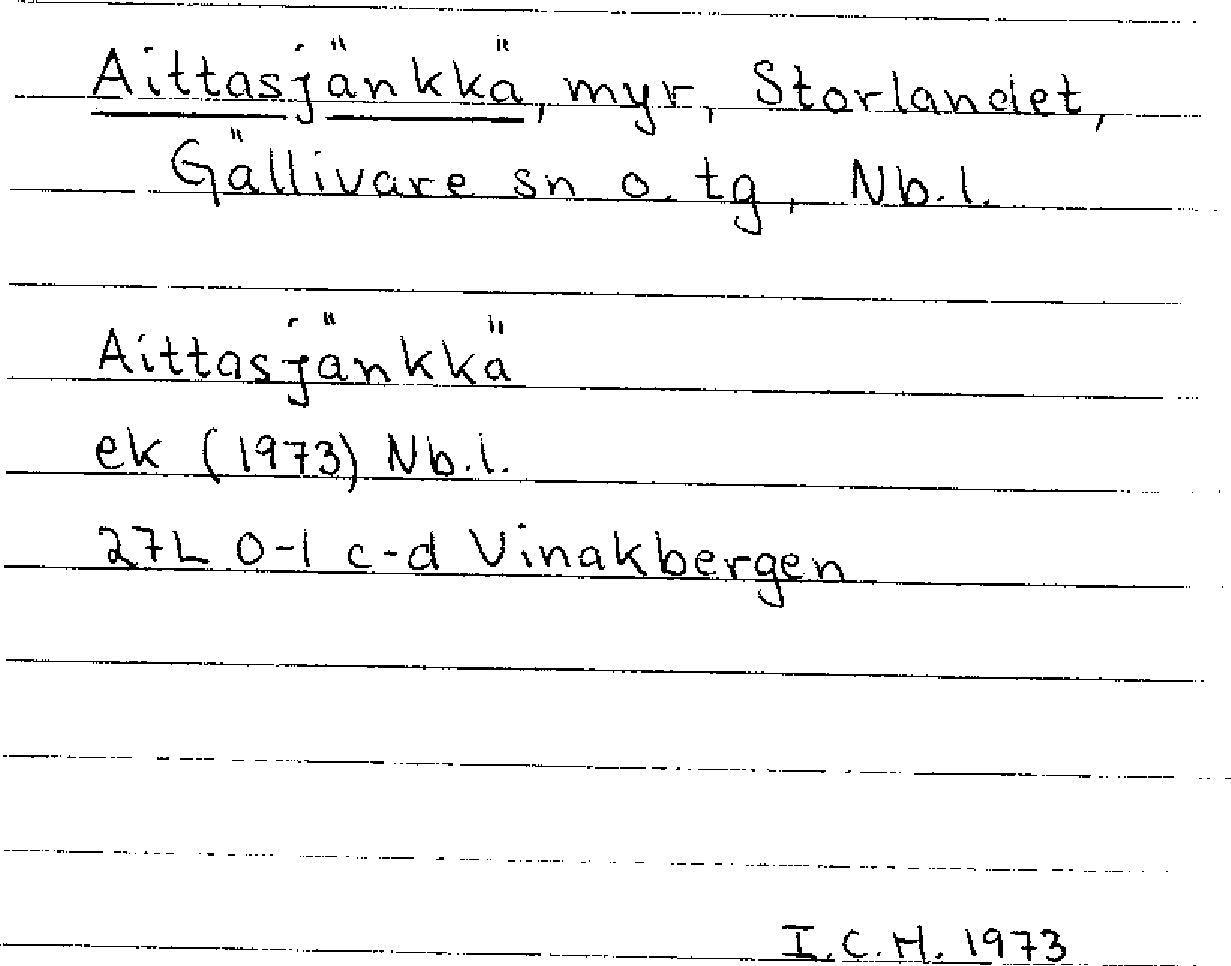 Aittasjänkkä, myr, Storlandet,
Gällivare sn o. tg, Nb.l.
Aittasjänkkä
ek (1973) Nb.l.
27L 0-1 c-d Vinakbergen
I.C.H. 1973